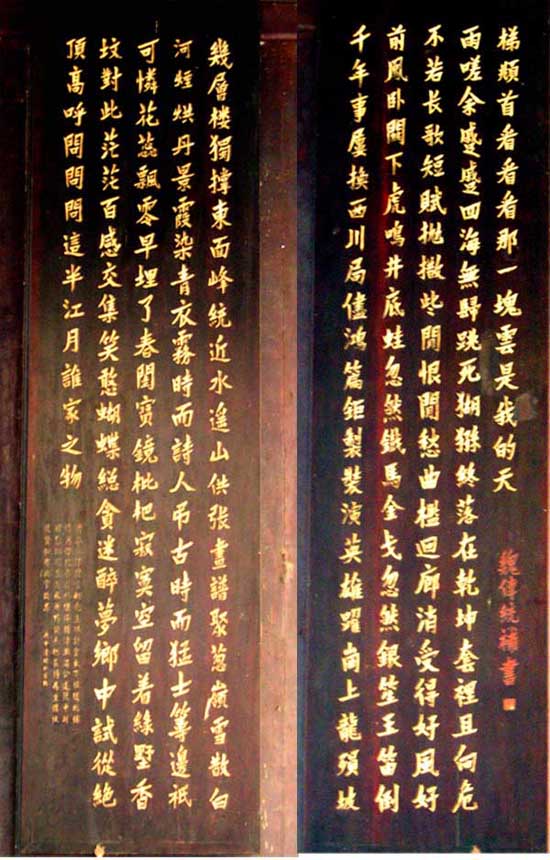 幾層樓獨撐東面峰統近水遙山供張畫譜聚葱嶺雪散白
河煙烘丹景霞染青衣霧時而詩人弔古時而猛士籌邊祇
可憐花蕊飄零早埋了春閨寶鏡枇杷寂寞空留着綠墅香
坟對此茫茫百感交集笑憨蝴蝶總貪迷醉夢鄉中試從絕
頂高呼問問問這半江月誰家之物
千年事屢換西川局儘鴻篇鉅製裝演英雄躍崗上龍殞坡
前鳳卧關下虎鳴井底蛙忽然鐵馬金戈忽然銀笙玉笛倒
不若長歌短賦拋撒些閒恨閒愁曲檻迴廊消受得好風好
雨嗟余蹙蹙四海無歸跳死猢猻終落在乾坤套裡且向危
梯頫首看看看那一塊雲是我的天
魏傳統補書